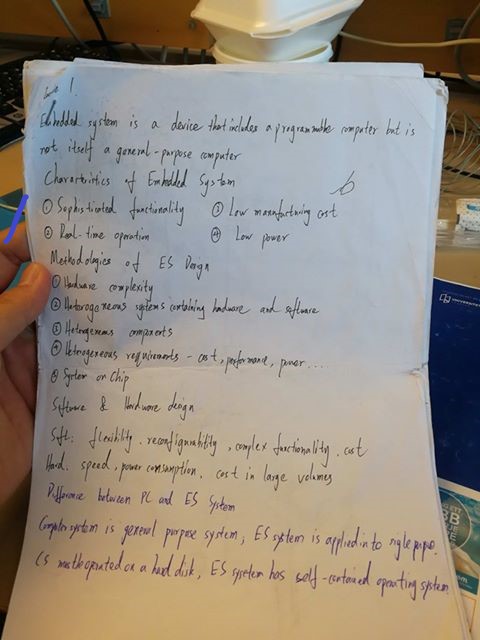 1.
Embedded system is a device that includes a programmable computer but is
not itself a general-purpose computer
Charactristics of Embedded System
① Sophisticated functionality ③ Low manufacturing cost
② Real-time operation ④ Low power
Methodologies of ES Design
① Hardware complexity
② Heterogeneous systems containing hardware and software
③ Heterogeneous components
④ Heterogeneous requirements - cost, performance, power ....
⑤ System on Chip
Software & Hardware design
Soft: flexibility. reconfigurability, complex functionality. cost
Hard. speed, power consumption, cost in large volumes
Difference between PC and ES System
Computer system is general purpose system, ES system is applied in to
CS must be operated on a hard disk, ES system has self-contained operating system